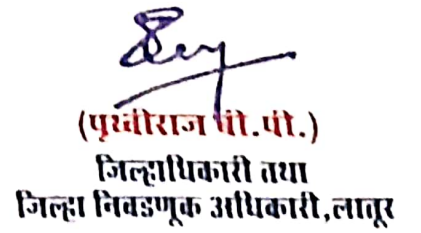 (पृथ्वीराज बी.पी.)
जिल्हाधिकारी तथा
जिल्हा निवडणूक अधिकारी,लातूर